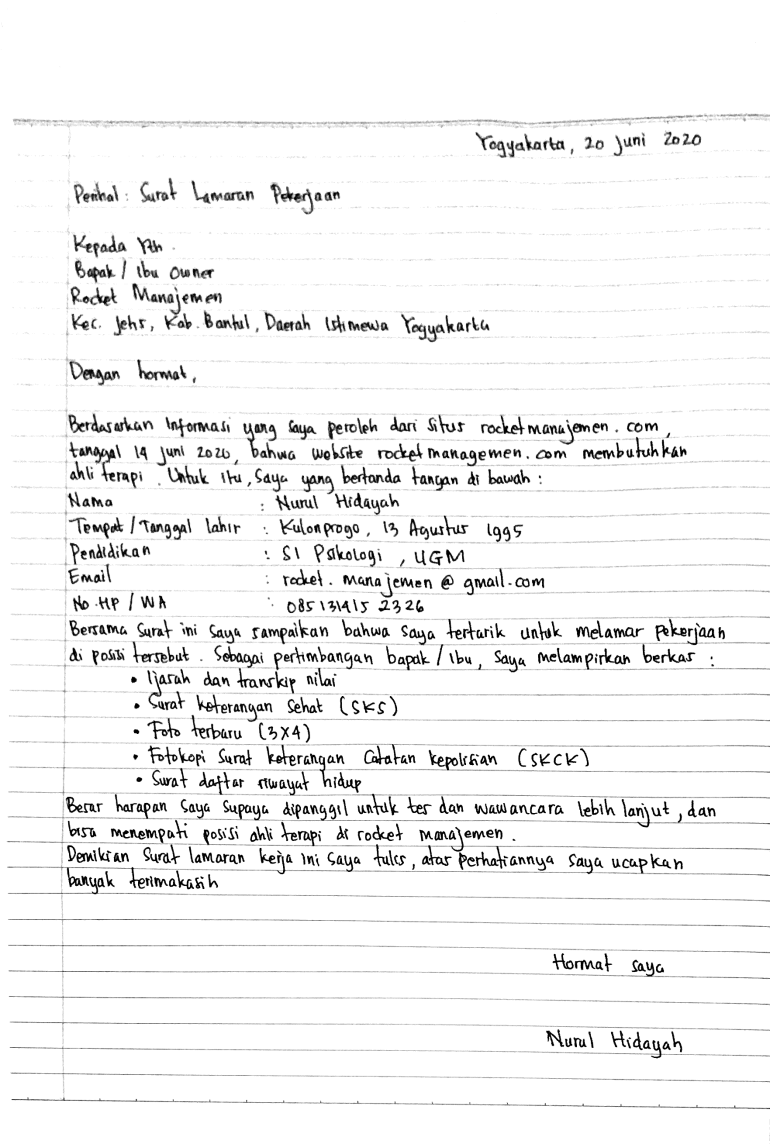 Yogyakarta, 20 Juni 2020
Perihal: Surat Lamaran Pekerjaan
Kepada Yth.
Bapak / Ibu Owner
Rocket Manajemen
Kec. Jehs, Kab. Bantul, Daerah Istimewa Yogyakarta
Dengan hormat,
Berdasarkan Informasi yang saya peroleh dari situs rocketmanajemen.com,
tanggal 14 juni 2020, bahwa website rocketmanagemen.com membutuhkan
ahli terapi. Untuk itu, Saya yang bertanda tangan di bawah :
Nama : Nurul Hidayah
Tempat / Tanggal lahir : Kulonprogo, 13 Agustus 1995
Pendidikan : S1 Psikologi, UGM
Email : rocket.manajemen@gmail.com
No.HP / WA : 085131415 2326
Bersama surat ini saya sampaikan bahwa saya tertarik untuk melamar pekerjaan
di posisi tersebut. Sebagai pertimbangan bapak / Ibu, saya melampirkan berkas :
• Ijasah dan transkip nilai
• Surat keterangan Sehat (SKS)
• Foto terbaru (3x4)
• Fotokopi Surat keterangan Catatan kepolisian (SKCK)
• Surat daftar riwayat hidup
Besar harapan saya supaya dipanggil untuk tes dan wawancara lebih lanjut, dan
bisa menempati posisi ahli terapi di rocket manajemen.
Demikian Surat lamaran kerja ini saya tulis, atas perhatiannya saya ucapkan
banyak terimakasih
Hormat saya
Nurul Hidayah